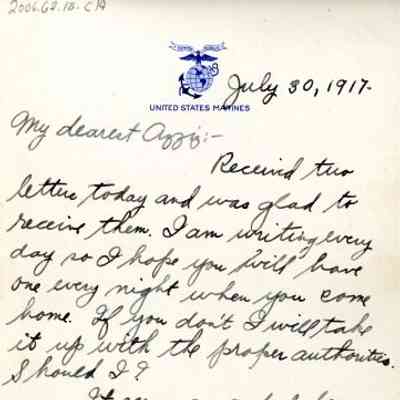 2006.62.1B.C1A
July 30, 1917.
UNITED STATES MARINES
My dearest Azziz:-
Received two
letters today and was glad to
receive them. I am writing every
day so I hope you will have
one every night when you come
home. If you don't I will take
it up with the proper authorities.
Should I?